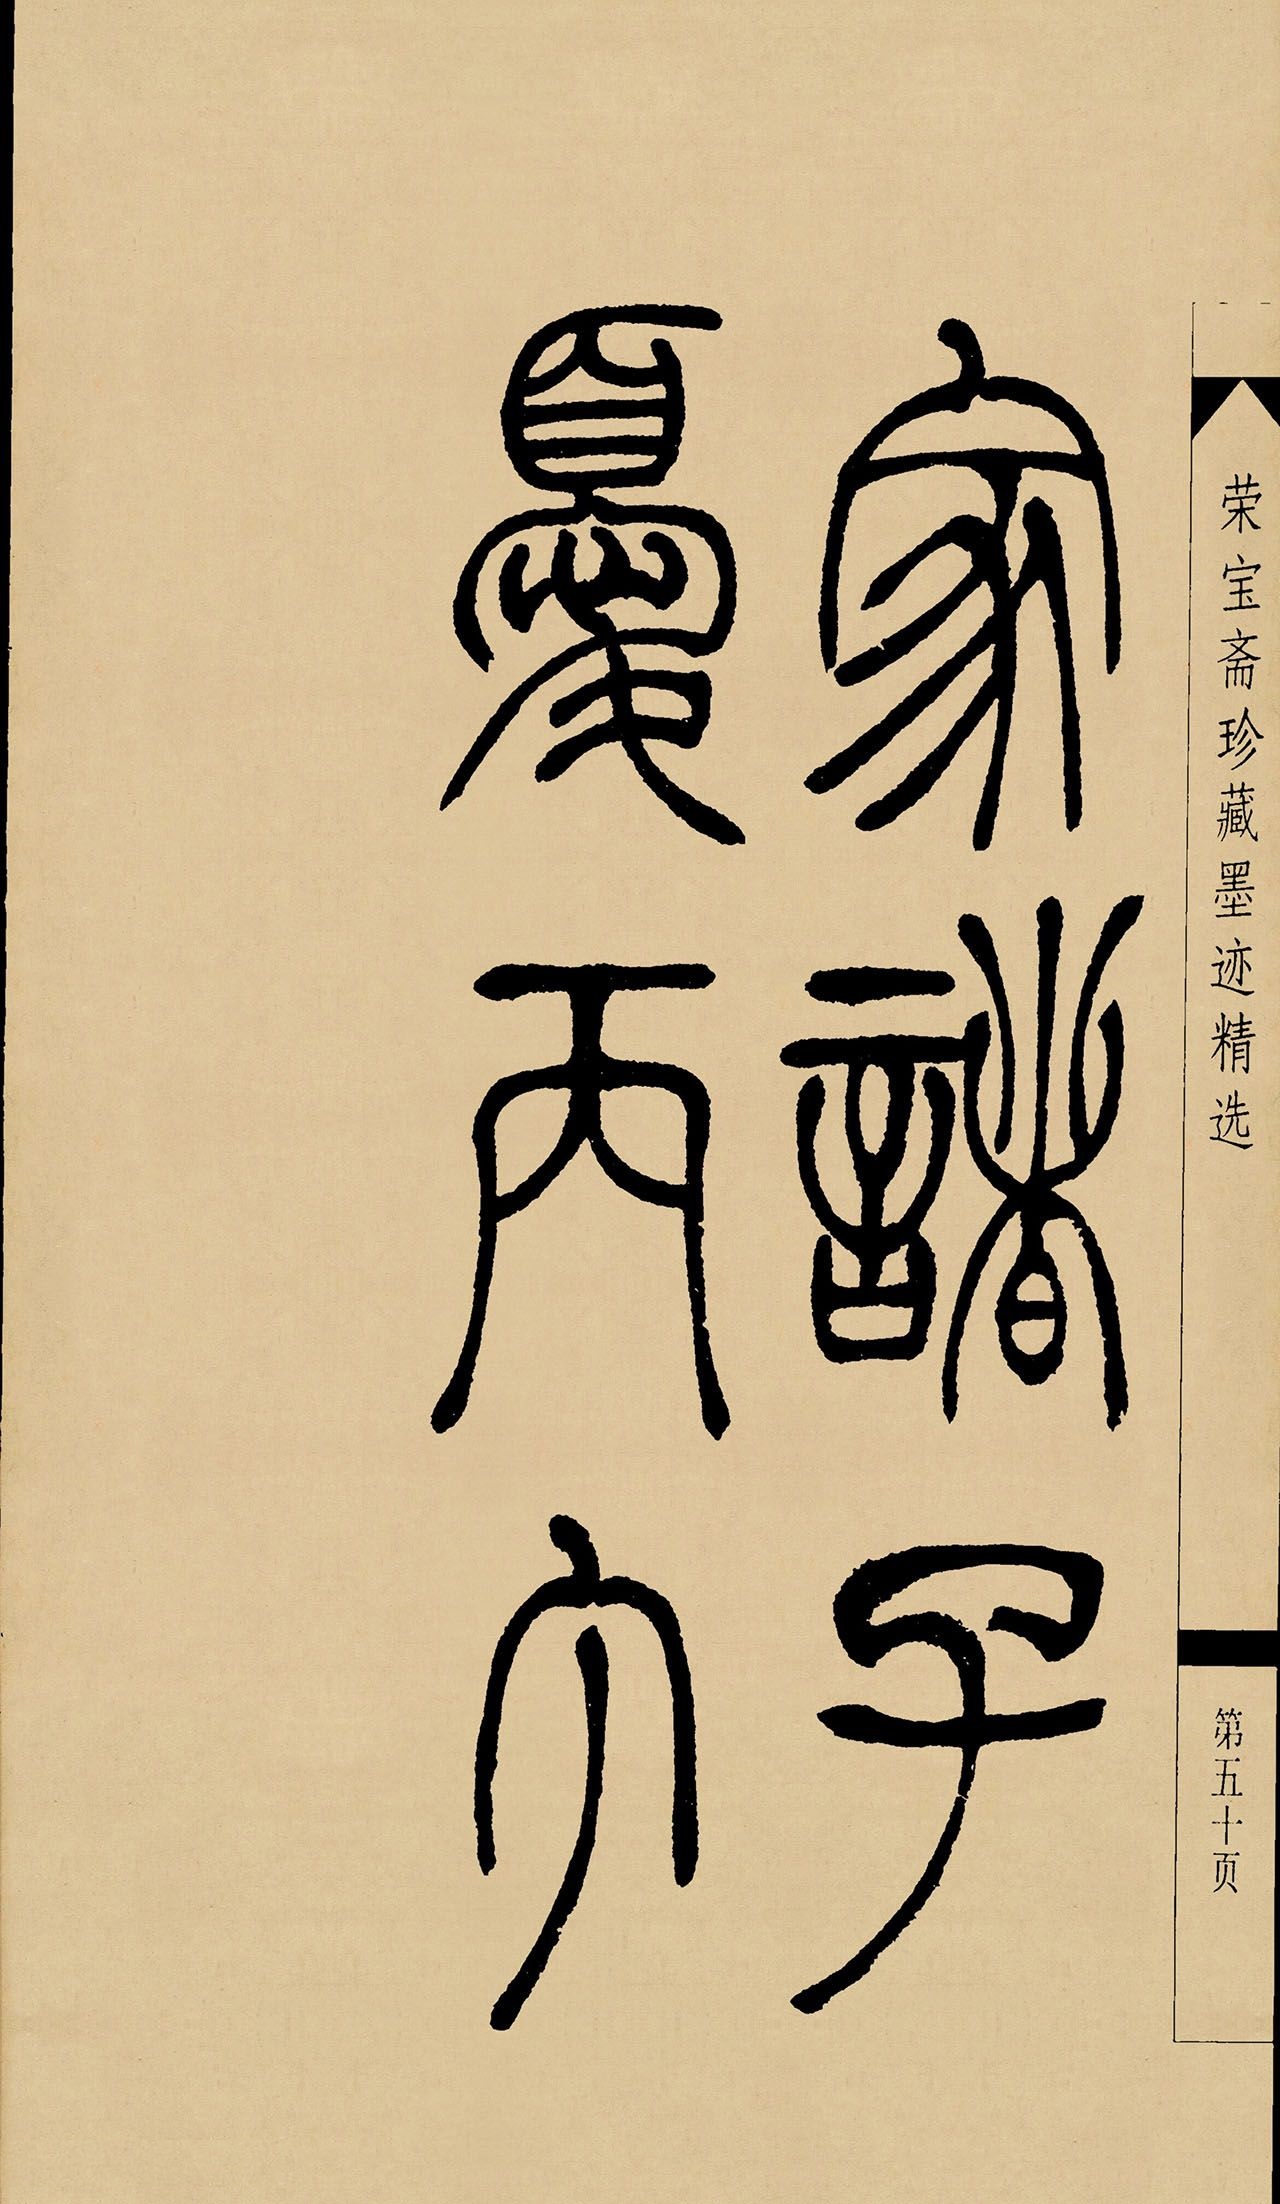 荣宝斋珍藏墨迹精选
第五十页
家諸子
憂丙